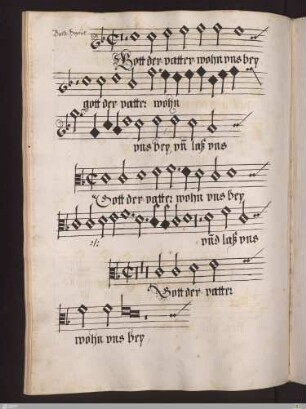 Gott der vatter wohn vns bey
gott der vatter wohn
vns bey vñ laß vns
Gott der vatter wohn vns bey
:/: vnd laß vns
Gott der vatter
wohn vns bey